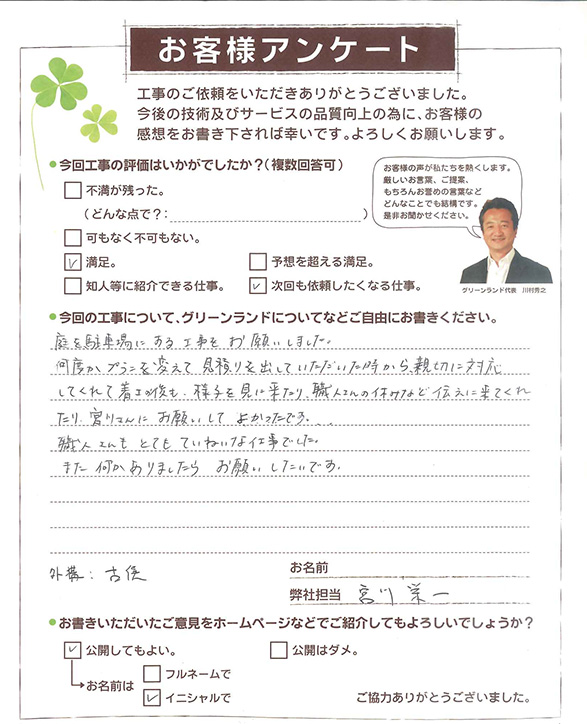 お客様アンケート
工事のご依頼をいただきありがとうございました。
今後の技術及びサービスの品質向上の為に、お客様の
感想をお書き下されば幸いです。よろしくお願いします。
●今回工事の評価はいかがでしたか?(複数回答可)
不満が残った。
(どんな点で?: )
可もなく不可もない。
満足。 予想を超える満足。
知人等に紹介できる仕事。 次回も依頼したくなる仕事。
お客様の声が私たちを熱くします。
厳しいお言葉、ご提案、
もちろんお誉めの言葉など
どんなことでも結構です。
是非お聞かせください。
グリーンランド代表 川村秀之
●今回の工事について、グリーンランドについてなどご自由にお書きください。
庭を駐車場にする工事をお願いしました。
何度かプランを変えて見積りを出していただいた時から、親切に対応
してくれて着工後も、様子を見に来たり、職人さんの休みなど伝えに来てくれ
たり、宮川さんにお願いしてよかったです...
職人さんもとてもていねいな仕事でした。
また何かありましたらお願いしたいです。
外構:
お名前
弊社担当 宮川 栄一
●お書きいただいたご意見をホームページなどでご紹介してもよろしいでしょうか?
公開してもよい。 公開はダメ。
お名前は フルネームで
イニシャルで
ご協力ありがとうございました。